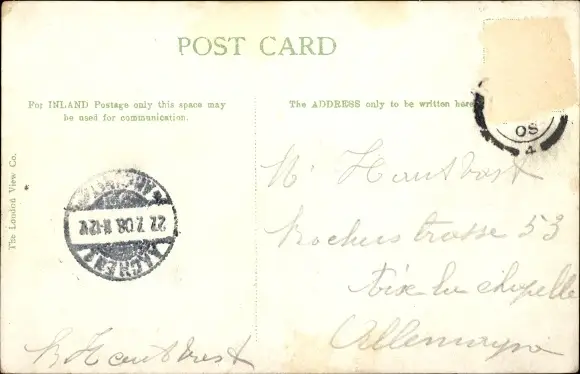 POST CARD
For INLAND Postage only this space may
be used for communication.
The ADDRESS only to be written here
The London View Co.
08
4
AACHEN 1
27.7.08. 11-12V
Mr Hautvast
Rochusstrasse 53
Aix la chapelle
Allemagne
Hautvast